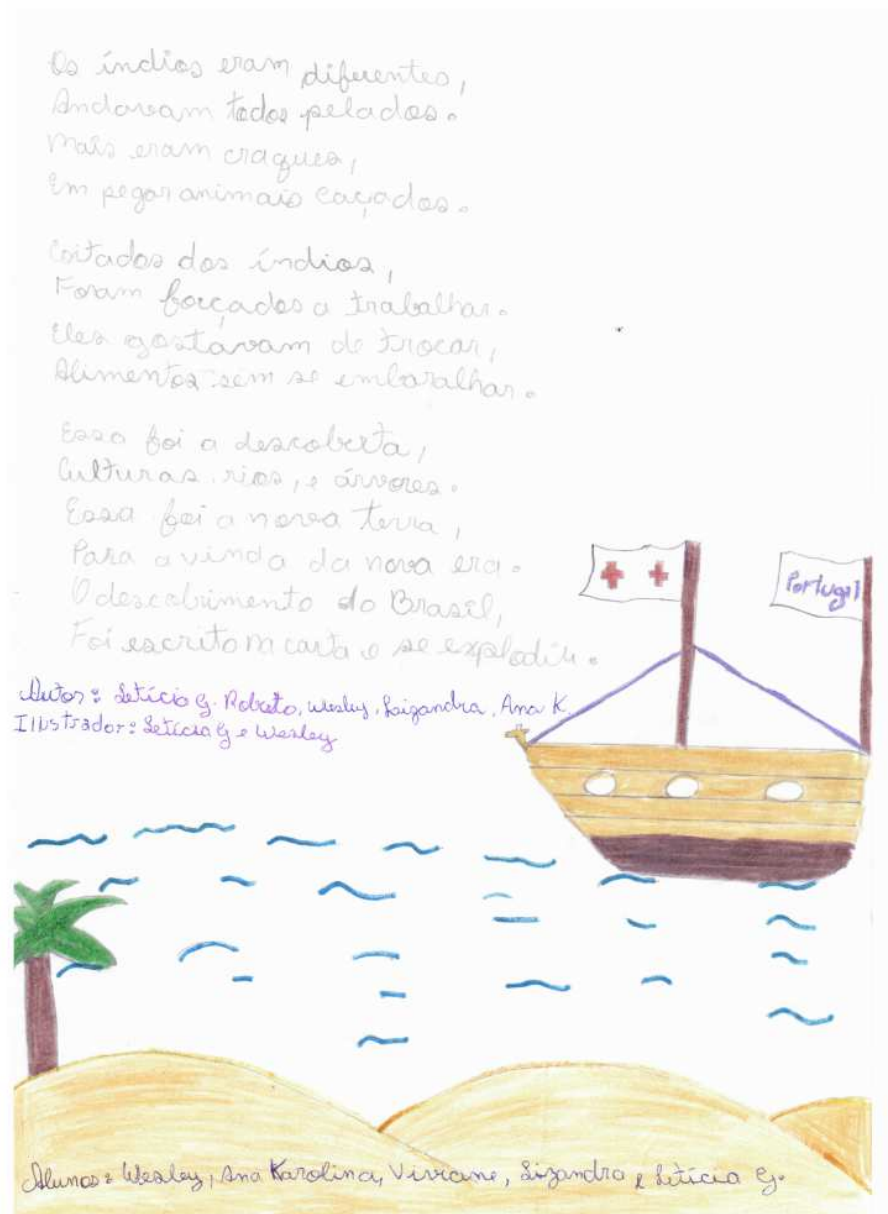 Os índios eram diferentes,
Andavam todos pelados.
Mais eram craques,
Em pegar animais caçados.
Coitados dos índios,
Foram forçados a trabalhar.
Eles gostavam de trocar,
Alimentos sem se embaralhar.
Essa foi a descoberta,
Culturas, rios, e árvores.
Essa foi a nova terra,
Para a vinda da nova era.
O descobrimento do Brasil,
Foi escrito na carta e se explodiu.
Portugal
Autor: Letícia G. Roberto, Wesley, Lizandra, Ana K.
Ilustrador: Letícia G e Wesley
Alunos: Wesley, Ana Karolina, Viviane, Lizandra e Letícia G.